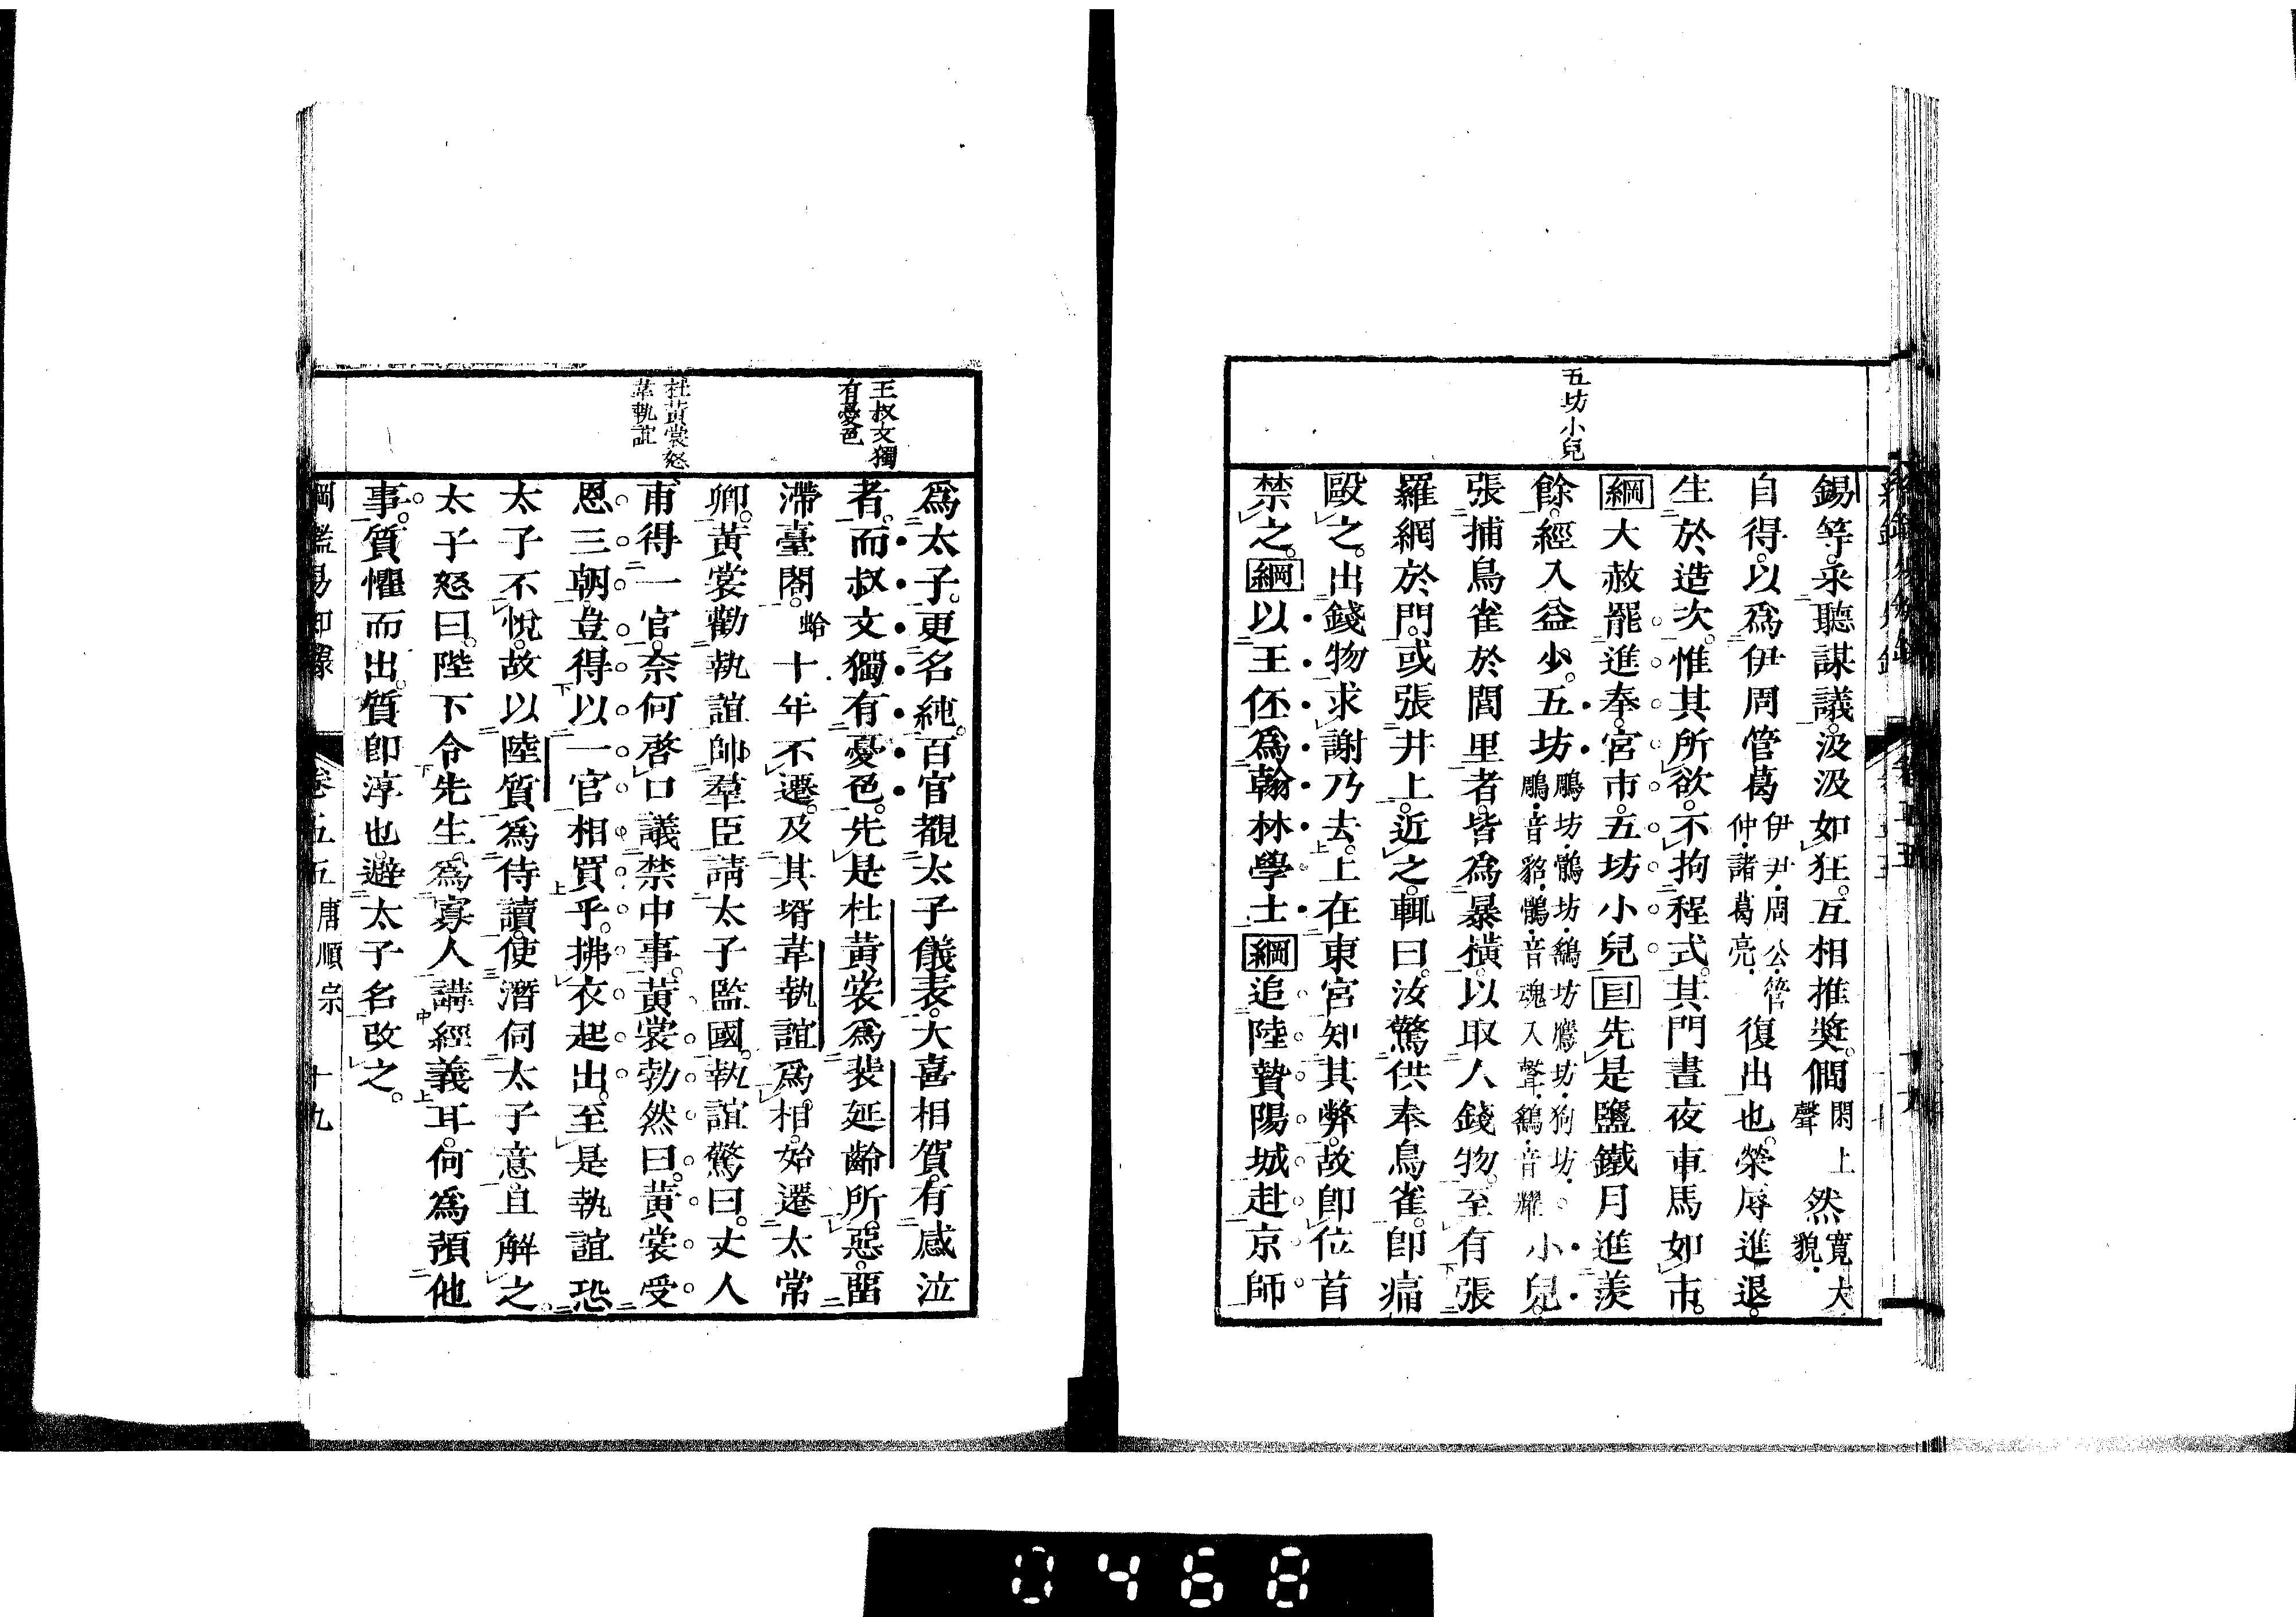 五坊小兒
錫等。采聽謀議。汲汲如狂。互相推奬。僩閑上聲然寬大貌。
自得。以爲伊周管葛伊尹・周公・管仲・諸葛亮・復出也。榮辱進退。
生於造次。惟其所欲。不拘程式。其門晝夜車馬如市。
綱大赦罷進奉。宮市。五坊小兒目先是鹽鐵月進羨
餘。經入益少。五坊鵰坊・鶻坊・鷂坊鷹坊・狗坊・鵰・音貂・鶻・音魂入聲・鷂・音耀小兒。
張捕鳥雀於閭里者。皆爲暴横。以取人錢物。至有張
羅網於門。或張井上。近之。輒曰。汝驚供奉鳥雀。卽痛
毆之。出錢物求謝乃去。上在東宮知其弊。故卽位首
禁之。綱以王伾爲翰林學士綱追陸贄陽城赴京師
王叔文獨
有憂色
杜黃裳怒
韋執誼
爲太子。更名純。百官覩太子儀表。大喜相賀。有感泣
者。而叔文獨有憂色。先是杜黃裳爲裴延齡所惡。留
滯臺閣。蛤十年不遷。及其壻韋執誼爲相。始遷太常
卿。黃裳勸執誼帥羣臣請太子監國。執誼驚曰。丈人
甫得一官。奈何啓口議禁中事。黃裳勃然曰。黃裳受
恩三朝。豈得以一官相買乎。拂衣起出。至是執誼恐
太子不悅。故以陸質爲侍讀。使潛伺太子意且解之。
太子怒曰。陛下令先生。爲寡人講經義耳。何爲預他
事。質懼而出。質卽淳也。避太子名改之。
綱鑑易知錄 卷五五 唐順宗 十九
0468